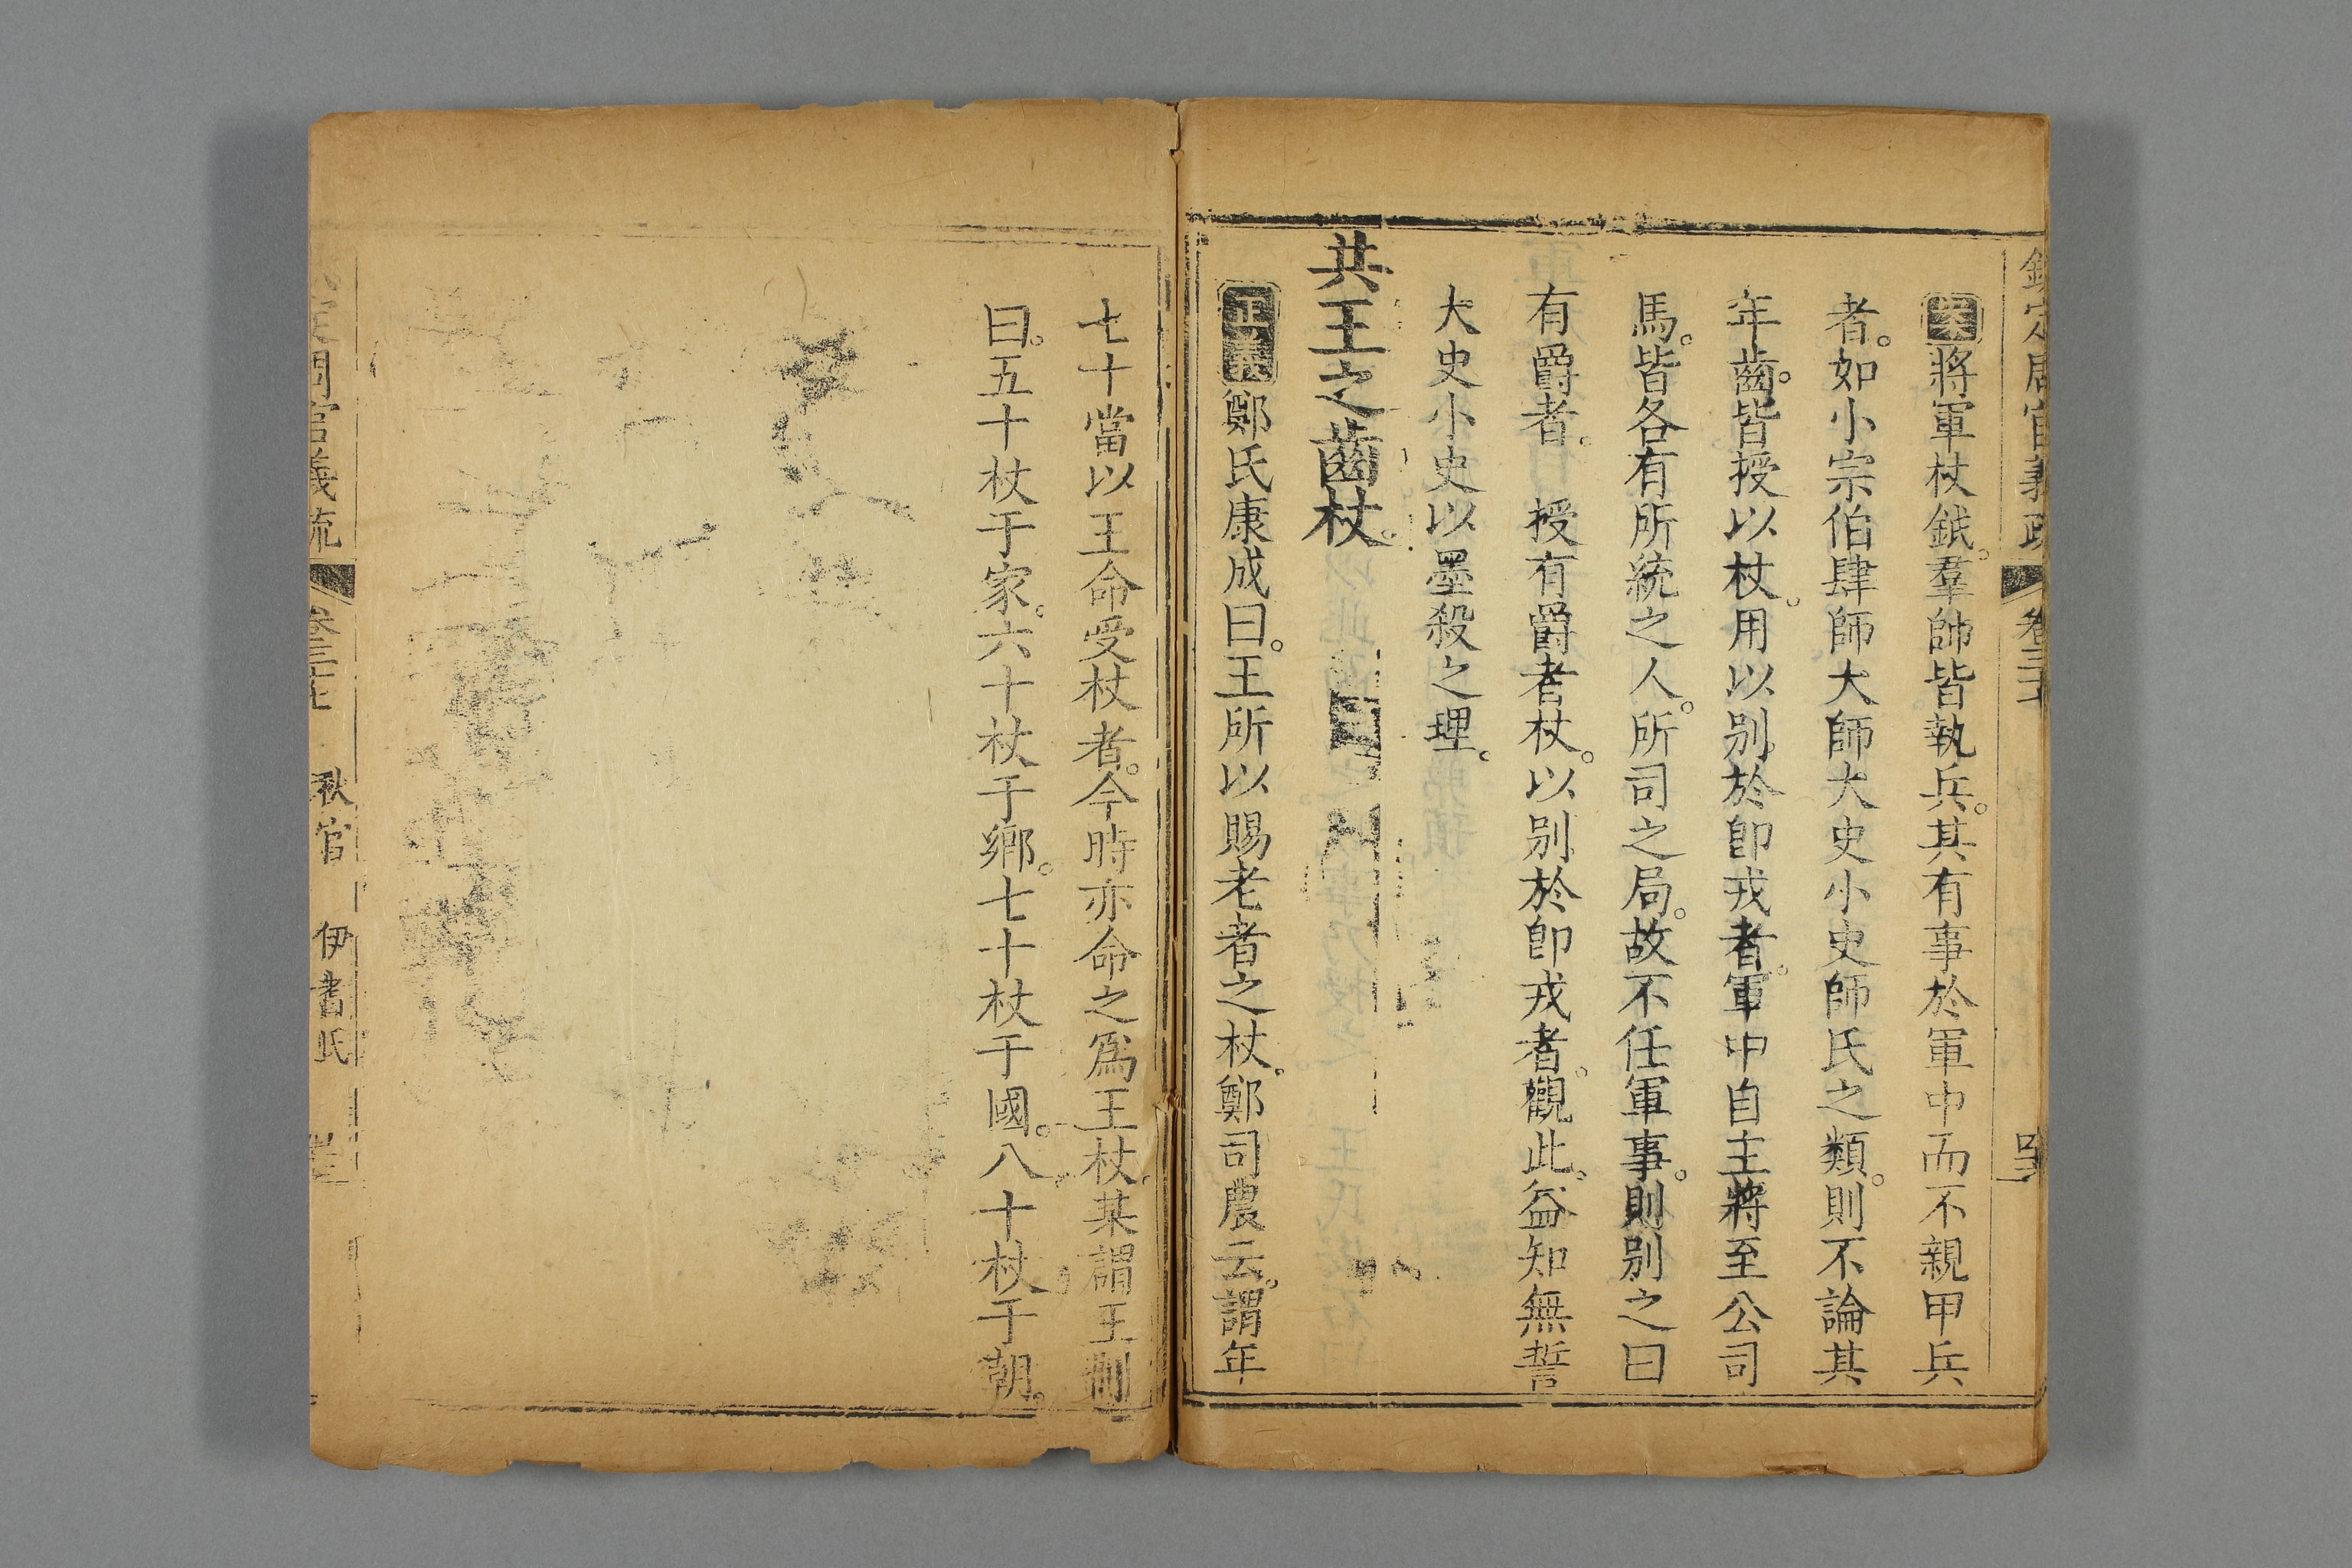 欽定周官義疏 卷三十七
案將軍杖鉞羣帥皆執兵其有事於軍中而不親甲兵
者如小宗伯肆師大師大史小史師氏之類則不論其
年齒皆授以杖用以別於卽戎者軍中自主將至公司
馬皆各有所統之人所司之局故不任軍事則別之曰
有爵者 授有爵者杖以別於卽戎者觀此益知無誓
大史小史以墨殺之理
共王之齒杖
正義鄭氏康成曰王所以賜老者之杖鄭司農云謂年
七十當以王命受杖者今時亦命之爲王杖某謂王制
曰五十杖于家六十杖于鄉七十杖于國八十杖于朝
官義疏 卷三十七 秋官 伊耆氏